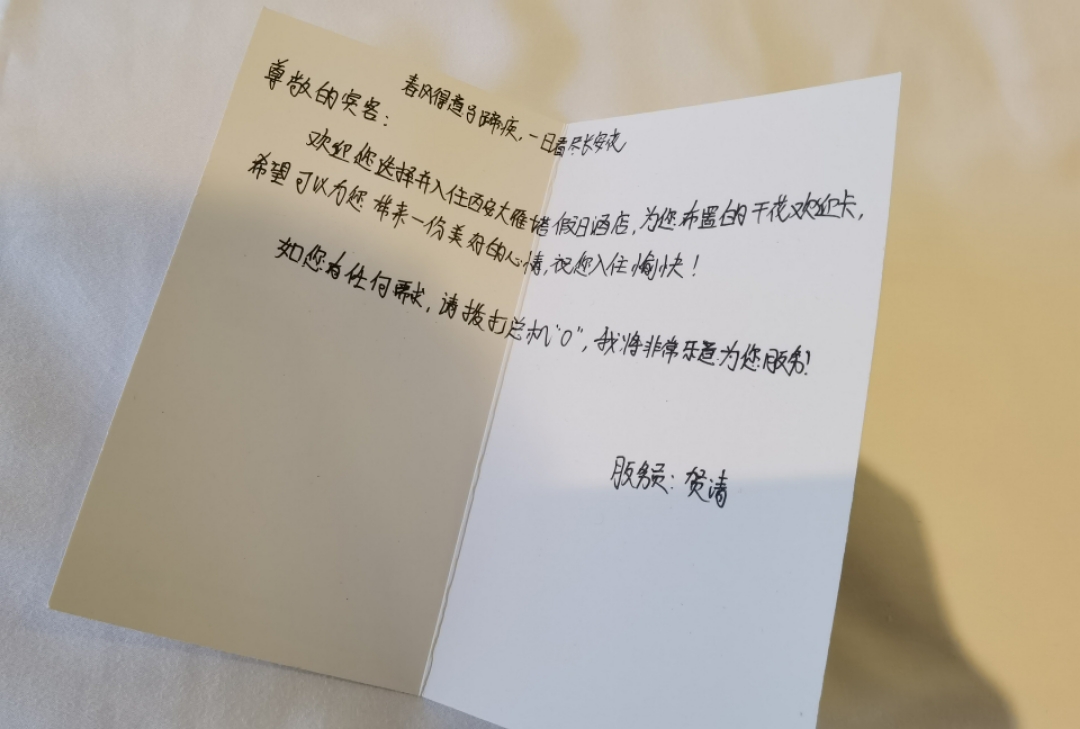 春风得意马蹄疾,一日看尽长安花
尊敬的宾客:
欢迎您选择并入住西安大雁塔假日酒店,为您布置的干花欢迎卡,
希望可以为您带来一份美好的心情,祝您入住愉快!
如您有任何需求,请拨打总机“0”,我将非常乐意为您服务!
服务员:贺清